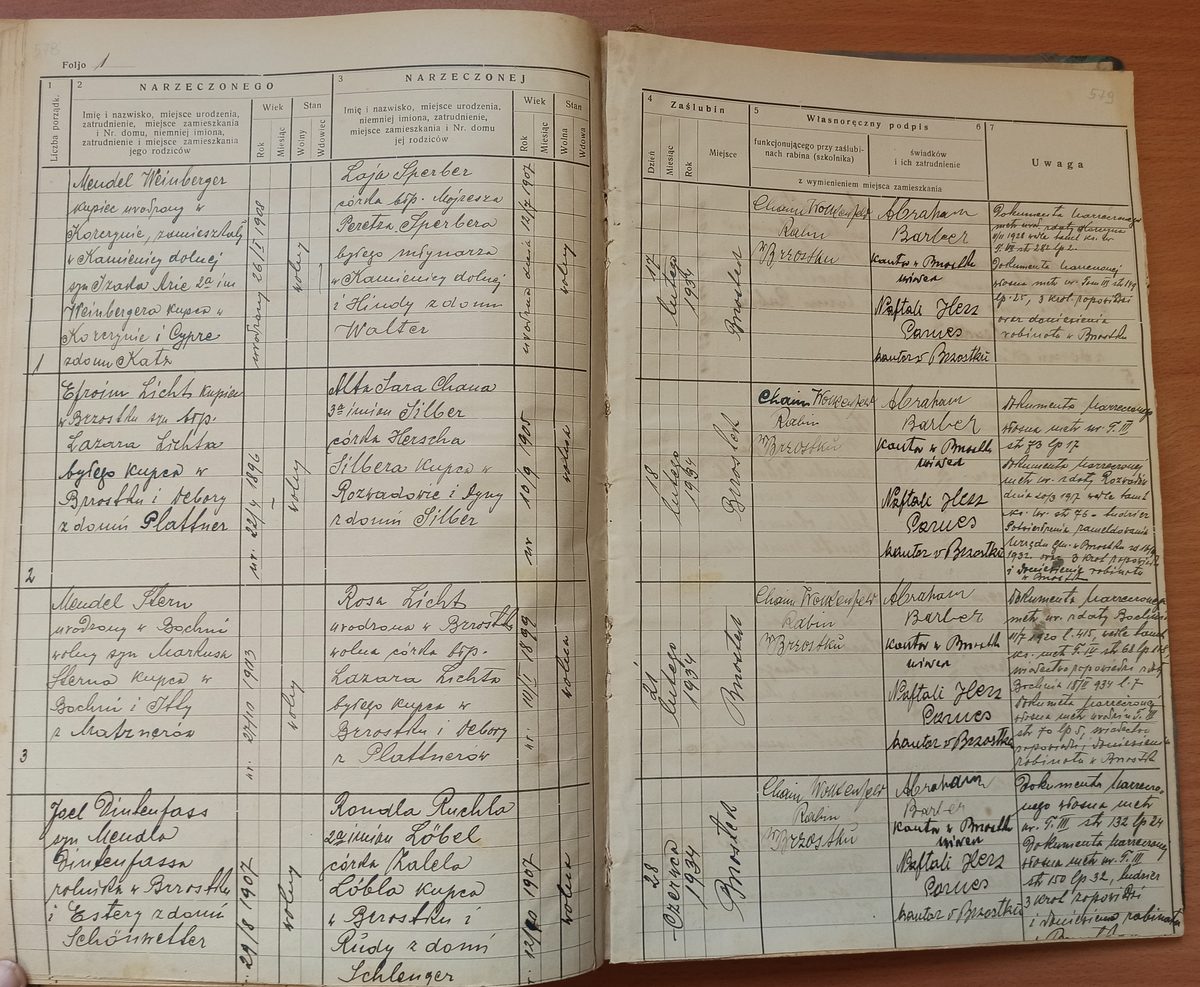 578
Foljo 1
1
Liczba porządk.
2 NARZECZONEGO
Imię i nazwisko, miejsce urodzenia,
zatrudnienie, miejsce zamieszkania
i Nr. domu, niemniej imiona,
zatrudnienie i miejsce zamieszkania
jego rodziców
Wiek
Rok
Miesiąc
Stan
Wolny
Wdowiec
3 NARZECZONEJ
Imię i nazwisko, miejsce urodzenia,
niemniej imiona, zatrudnienie,
miejsce zamieszkania i Nr. domu
jej rodziców
Wiek
Rok
Miesiąc
Stan
Wolna
Wdowa
1
Mendel Weinberger
kupiec urodzony w
Korczynie, zamieszkały
w Kamienicy dolnej
syn Izada Arie 2a im
Weinbergera kupca w
Korczynie i Cypre
z domu Katz
urodzony 26/II 1908
wolny
Laja Sperber
córka błp. Mojżesza
Peretza Sperbera
byłego młynarza
w Kamienicy dolnej
i Hindy z domu
Walter
urodzona dnia 12/7 1907
wolny
2
Efroim Licht kupiec
w Brzostku syn błp.
Lazara Lichta
byłego kupca w
Brzostku i Debory
z domu Plattner
ur. 22/4 1896
wolny
Alta Sara Chana
3a imion Silber
córka Herscha
Silbera kupca w
Rozwadowie i
z domu Silber
ur 10/9 1905
wolna
3
Mendel Stern
urodzony w Bochni
wolny syn Markusa
Sterna kupca w
Bochni i Itty
z Matznerów
ur. 27/10 1903
wolny
Rosa Licht
urodzona w Brzostku
wolna córka błp.
Lazara Lichta
byłego kupca w
Brzostku i Debory
z Plattnerów
ur. 10/I 1899
wolna
Joel Dintenfass
syn Mendla
Dintenfassa
rolnika w Brzostku
i Estery z domu
Schönwetter
29/8 1907
wolny
Rondla Ruchla
2a imion Löbel
córka Kalela
Löbla kupca
w Brzostku i
Rudy z domu
Schlenger
1907
wolna
579
4 Zaślubin
Dzień
Miesiąc
Rok
Miejsce
5 Własnoręczny podpis 6
funkcjonującego przy zaślubi-
nach rabina (szkolnika)
świadków
i ich zatrudnienie
z wymienieniem miejsca zamieszkania
7
Uwaga
17
lutego
1934
Brzostek
Chaim Wolkenfeld
Rabin
W Brzostku
Abraham
Barber
kantor w Brzostku
Naftali Herz
Parnes
kantor w Brzostku
Dokumenta narzeczonego
Dokumenta narzeczonej
własna metr ur. Tom III str 149
lp. 25, 3 krot. zapowiedzi
oraz doniesienia
rabinatu w Brzostku
18
lutego
1934
Brzostek
Chaim Wolkenfeld
Rabin
W Brzostku
Abraham
Barber
kantor w Brzostku
Naftali Herz
Parnes
kantor w Brzostku
Dokumenta narzeczonego
własna metr ur. T. III
str 73 lp 17
Dokumenta narzeczonej
21
lutego
1934
Brzostek
Chaim Wolkenfeld
Rabin
W Brzostku
Abraham
Barber
kantor w Brzostku
Naftali Herz
Parnes
kantor w Brzostku
Dokumenta narzeczonego
Bochnia 18/II 934 l. 7
Dokumenta narzeczonej
własna metr urodzin T. III
str 70 lp 5,
rabinatu w Brzostku
28
Czerwca
1934
Brzostek
Chaim Wolkenfeld
Rabin
W Brzostku
Abraham
Barber
kantor w Brzostku
Naftali Herz
Parnes
kantor w Brzostku
Dokumenta narzeczo-
nego własna metr
ur. T. III str 132 lp 24
Dokumenta narzeczonej
własna metr ur. T. III
str 150 lp 32,
3 krot zapowiedzi
i doniesienia rabinatu